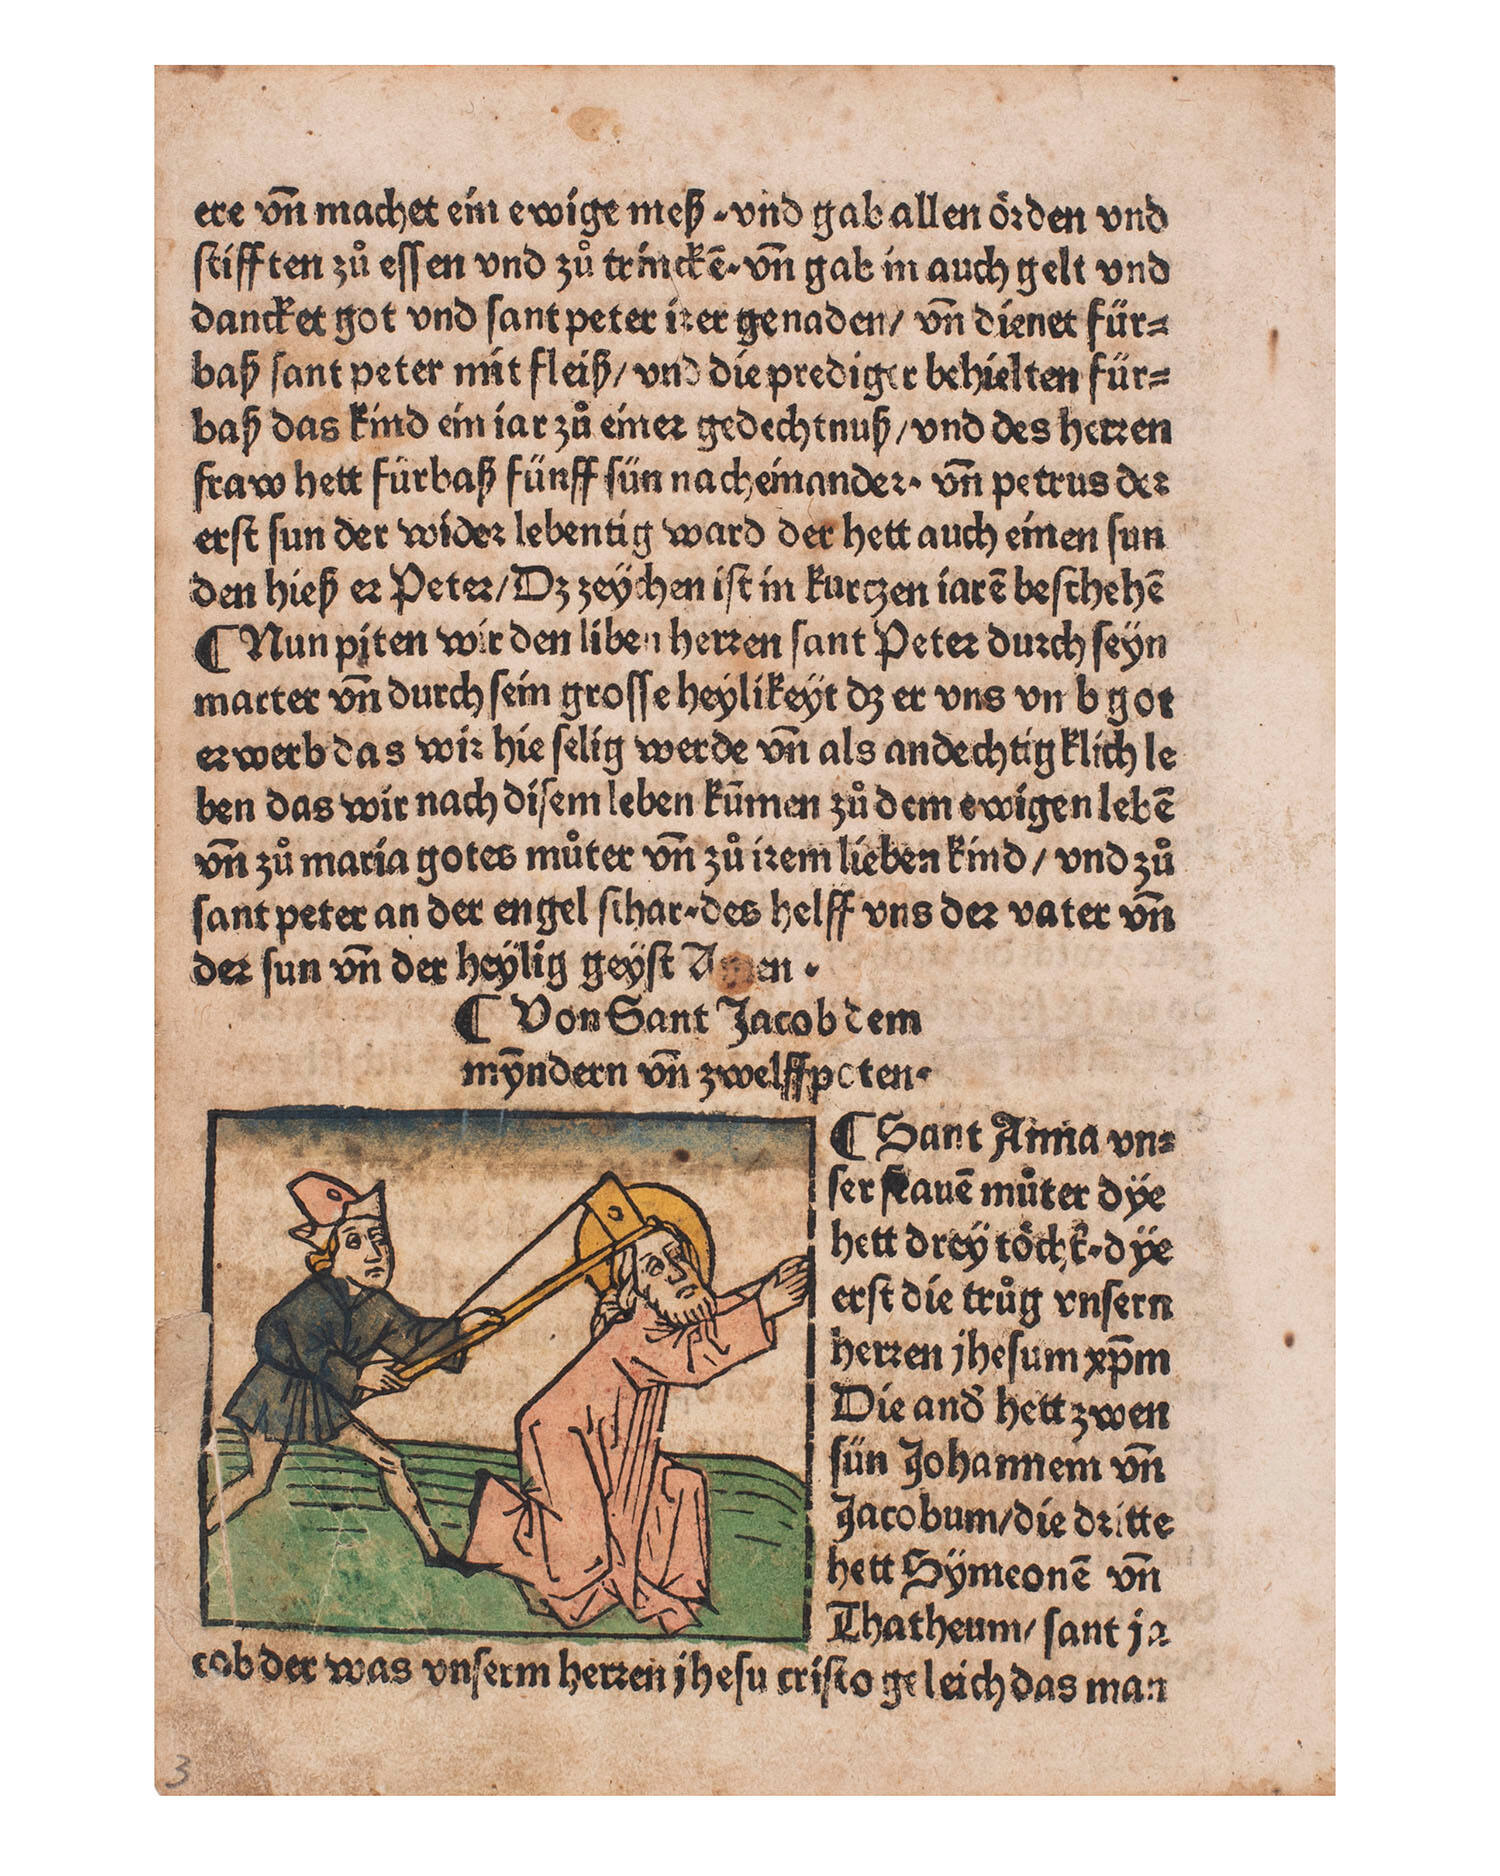 ere vn̄ machet ein ewige meß · vnd gab allen örden vnd
stifften zů essen vnd zů trinckē · vn̄ gab in auch gelt vnd
dancket got vnd sant peter irer genaden / vn̄ dienet für⸗
baß sant peter mit fleiß / vnd die prediger behielten für⸗
baß das kind ein iar zů einer gedechtnuß / vnd des herren
fraw hett fürbaß fünff sün nach einander · vn̄ petrus der
erst sun der wider lebentig ward der hett auch einen sun
den hieß er Peter / Dz zeÿchen ist in kurtzen iarē beschehē
¶ Nun piten wir den liben herren sant Peter durch seÿn
marter vn̄ durch sein grosse heÿlikeÿt dz er vns vm b got
erwerb das wir hie selig werde vn̄ als andechtigklich le
ben das wir nach disem leben kūmen zů dem ewigen lebē
vn̄ zů maria gotes můter vn̄ zů irem lieben kind / vnd zů
sant peter an der engel schar · des helff vns der vater vn̄
der sun vn̄ der heÿlig geÿst Amen ·
¶ Von Sant Jacob dem
mÿndern vn̄ zwelffpoten ·
¶ Sant Anna vn⸗
ser frauē můter dÿe
hett dreÿ · dÿe
erst die trůg vnsern
herren jhesum xp̄m
Die and' hett zwen
sün Johannem vn̄
Jacobum / die dritte
hett Sÿmeonē vn̄
Thatheum / sant ja
cob der was vnserm herren jhesu cristo geleich das man
3